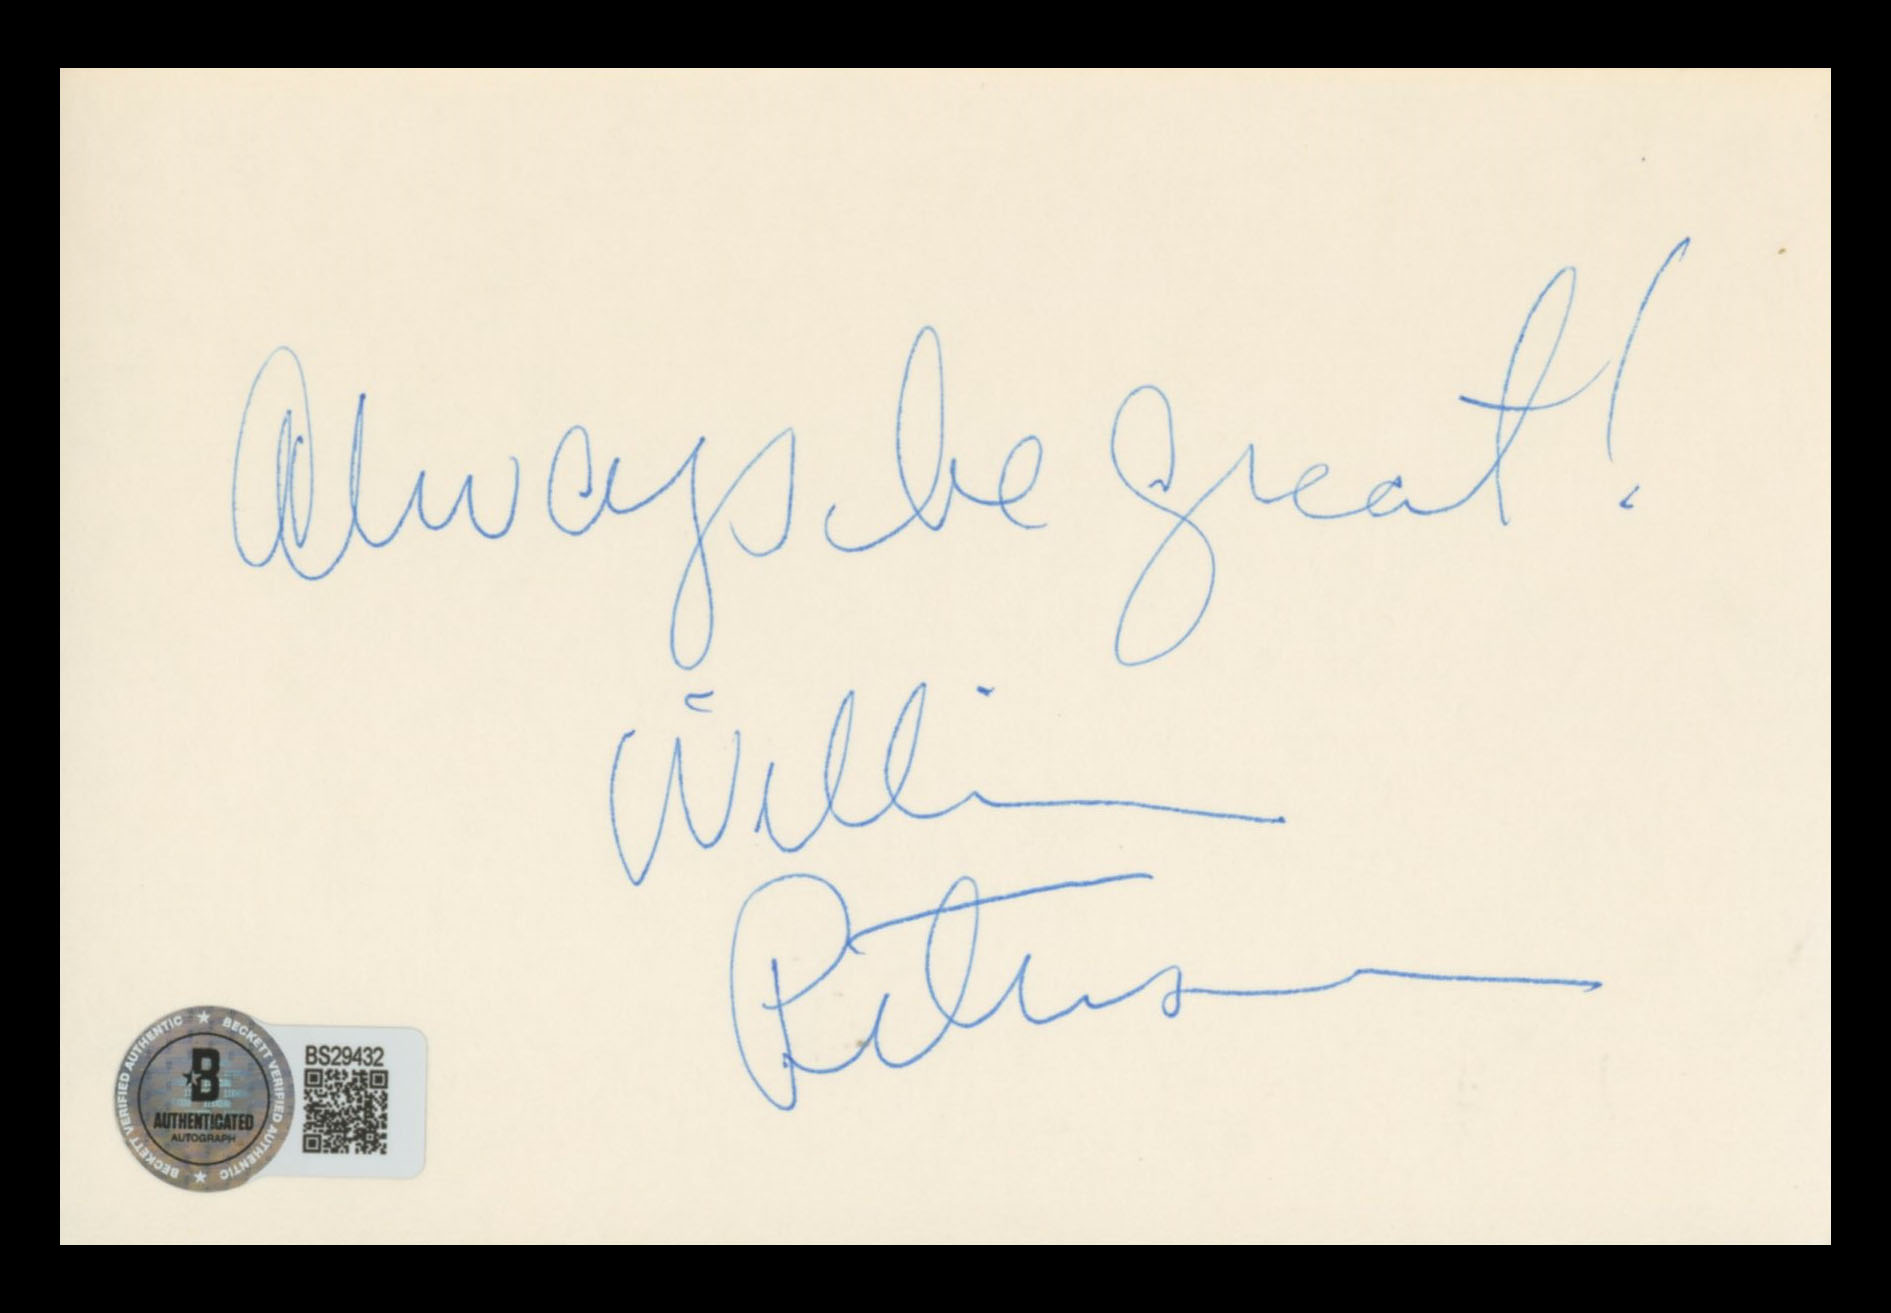 Always be great!
William
Petersen
BECKETT VERIFIED AUTHENTIC ★ BECKETT VERIFIED AUTHENTIC ★
B
AUTHENTICATED
AUTOGRAPH
BS29432